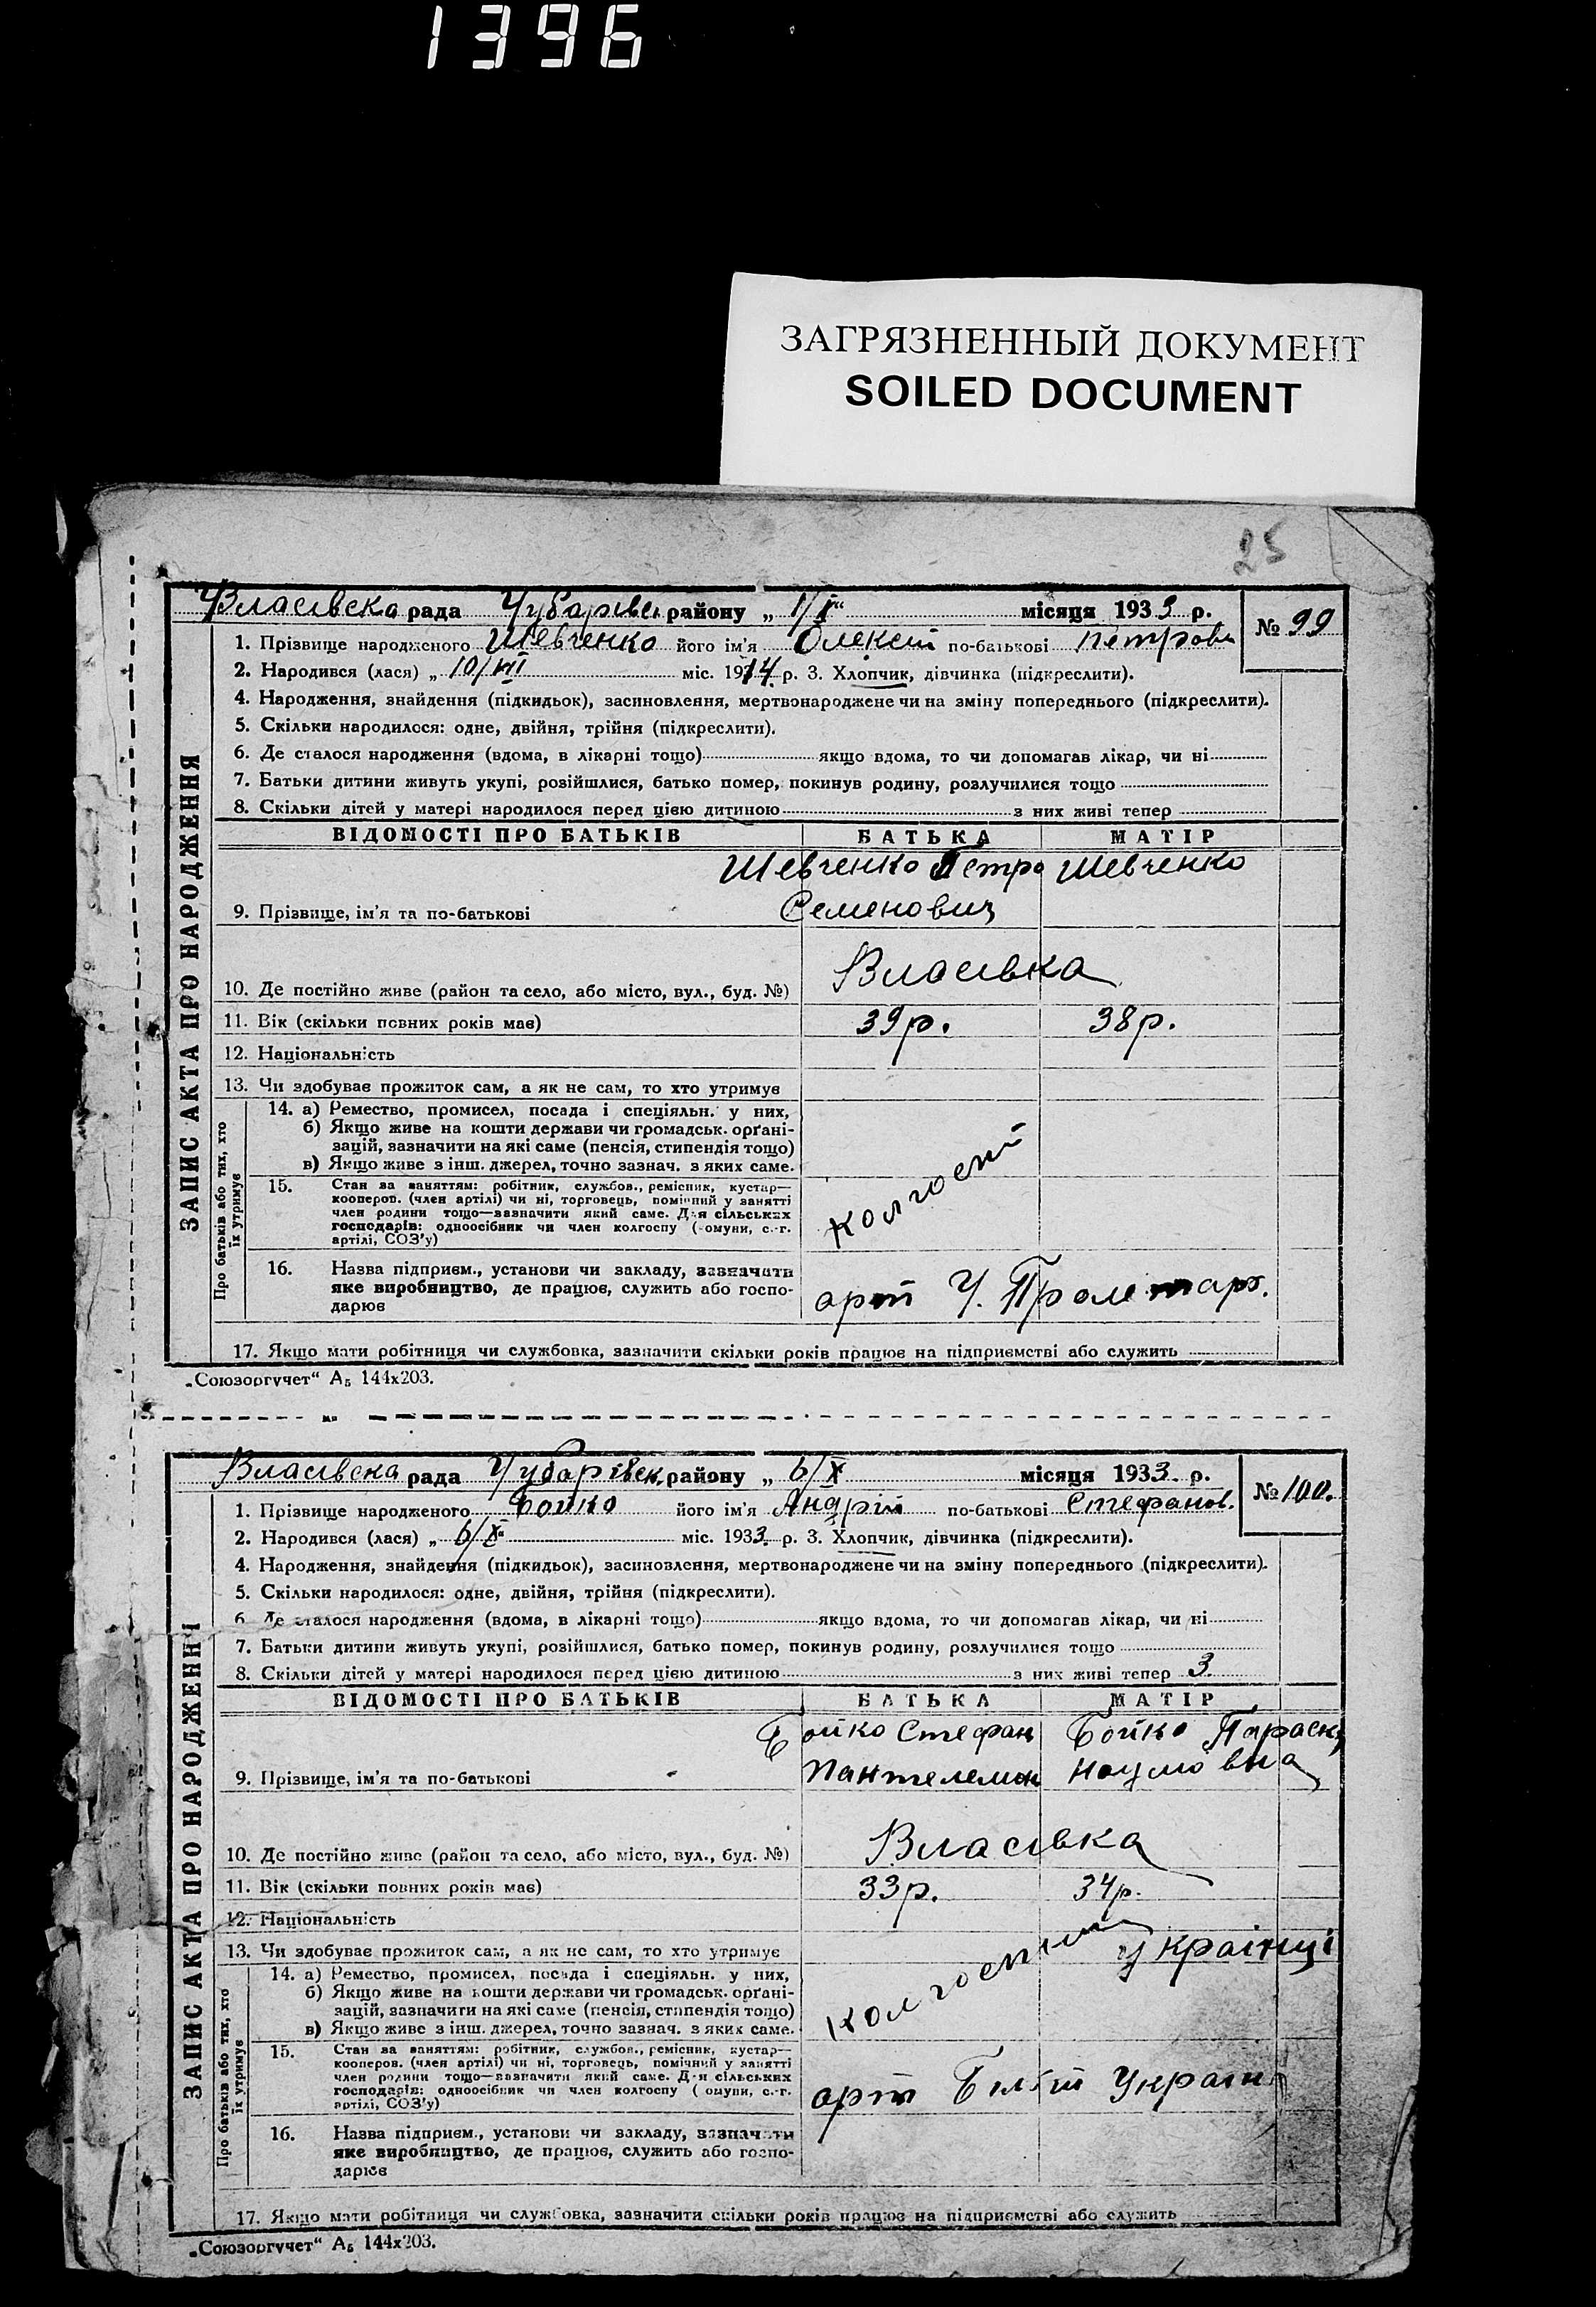 1396
ЗАГРЯЗНЕННЫЙ ДОКУМЕНТ
SOILED DOCUMENT
25
Власівська рада Чубарівськ району „ 1/X “ місяця 1933 р. № 99
1. Прізвище народженого Шевченко його ім'я Олексій по-батькові Петрови
2. Народився (лася) „ 10/VII міс. 1914 р. 3. Хлопчик, дівчинка (підкреслити).
4. Народження, знайдення (підкидьок), засиновлення, мертвонароджене чи на зміну попереднього (підкреслити).
5. Скільки народилося: одне, двійня, трійня (підкреслити).
6. Де сталося народження (вдома, в лікарні тощо) якщо вдома, то чи допомагав лікар, чи ні
7. Батьки дитини живуть укупі, розійшлися, батько помер, покинув родину, розлучилися тощо
8. Скільки дітей у матері народилося перед цією дитиною з них живі тепер
ЗАПИС АКТА ПРО НАРОДЖЕННЯ
ВІДОМОСТІ ПРО БАТЬКІВ БАТЬКА МАТІР
Шевченко Петро Шевченко
9. Прізвище, ім'я та по-батькові Семенович
10. Де постійно живе (район та село, або місто, вул., буд. №) Власівка
11. Вік (скільки повних років має) 39 р. 38 р.
12. Національність
13. Чи здобуває прожиток сам, а як не сам, то хто утримує
Про батьків або тих, хто їх утримує
14. а) Ремество, промисел, посада і спеціяльн. у них,
б) Якщо живе на кошти держави чи громадськ. орґані-
зацій, зазначити на які саме (пенсія, стипендія тощо)
в) Якщо живе з інш. джерел, точно зазнач. з яких саме.
колгосп
15. Стан за заняттям: робітник, службов., ремісник, кустар—
кооперов. (член артілі) чи ні, торговець, помічний у занятті
член родини тощо—зазначити який саме. Для сільських
господарів: одноосібник чи член колгоспу (комуни, с.-г.
артілі, СОЗ'у)
16. Назва підприєм., установи чи закладу, зазначити
яке виробництво, де працює, служить або госпо-
дарює
арт Ч. Пролетар.
17. Якщо мати робітниця чи службовка, зазначити скільки років працює на підприємстві або служить
„Союзоргучет“ А₅ 144х203.
Власівська рада Чубарівськ. району „ 6/X місяця 1933 р. № 100.
1. Прізвище народженого Бойко його ім'я Андрій по-батькові Стефанов.
2. Народився (лася) „ 6/X “ міс. 1933 р. 3. Хлопчик, дівчинка (підкреслити).
4. Народження, знайдення (підкидьок), засиновлення, мертвонароджене чи на зміну попереднього (підкреслити).
5. Скільки народилося: одне, двійня, трійня (підкреслити).
6. Де сталося народження (вдома, в лікарні тощо) якщо вдома, то чи допомагав лікар, чи ні
7. Батьки дитини живуть укупі, розійшлися, батько помер, покинув родину, розлучилися тощо
8. Скільки дітей у матері народилося перед цією дитиною з них живі тепер 3
ЗАПИС АКТА ПРО НАРОДЖЕННЯ
ВІДОМОСТІ ПРО БАТЬКІВ БАТЬКА МАТІР
Бойко Стефан Бойко Параск
9. Прізвище, ім'я та по-батькові Пантелемон Наумовна
10. Де постійно живе (район та село, або місто, вул., буд. №) Власівка
11. Вік (скільки повних років має) 33 р. 34 р.
12. Національність
українці
13. Чи здобуває прожиток сам, а як не сам, то хто утримує
Про батьків або тих, хто їх утримує
14. а) Ремество, промисел, посада і спеціяльн. у них,
б) Якщо живе на кошти держави чи громадськ. орґані-
зацій, зазначити на які саме (пенсія, стипендія тощо)
в) Якщо живе з інш. джерел, точно зазнач. з яких саме.
15. Стан за заняттям: робітник, службов., ремісник, кустар—
кооперов. (член артілі) чи ні, торговець, помічний у занятті
член родини тощо—зазначити який саме. Для сільських
господарів: одноосібник чи член колгоспу ( омуни, с.-г.
артілі, СОЗ'у)
арт Україн
16. Назва підприєм., установи чи закладу, зазначити
яке виробництво, де працює, служить або госпо-
дарює
17. Якщо мати робітниця чи службовка, зазначити скільки років працює на підприємстві або служить
„Союзоргучет“ А₅ 144х203.